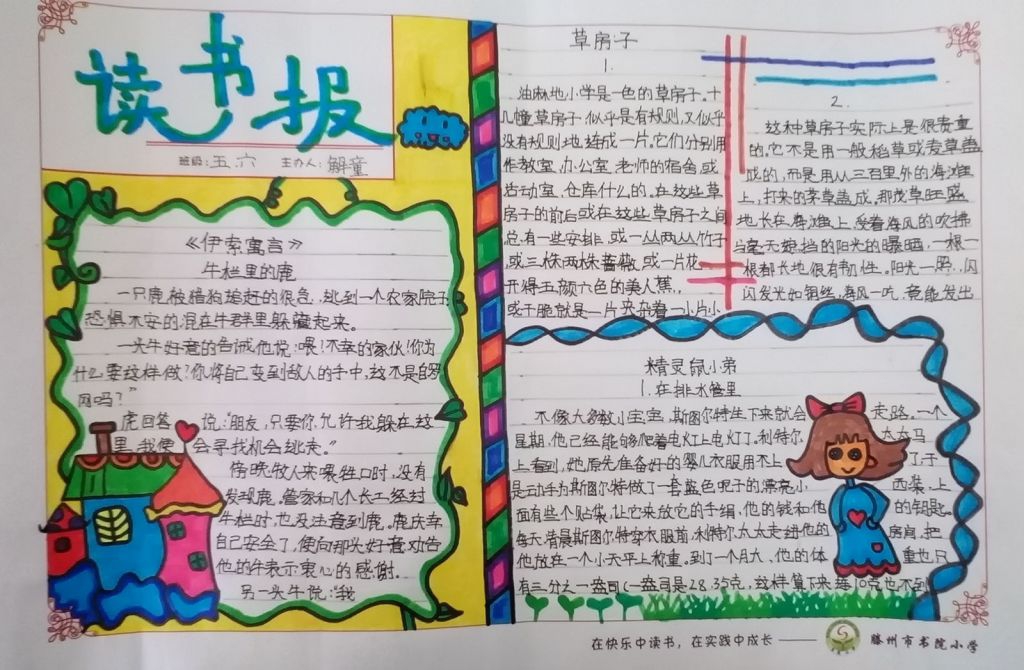 读书报
班级:五、六 主办人:解童
《伊索寓言》
牛栏里的鹿
一只鹿被猎狗追赶的很急,逃到一个农家院子
恐惧不安的混在牛群里躲藏起来。
一头牛好意的告诫他说:喂!不幸的家伙!你为
什么要这样做?你将自己交到敌人的手中,这不是自罗
网吗?”
鹿回答 说:“朋友,只要你允许我躲在这
里,我便 会寻找机会逃走。”
傍晚牧人来喂牲口时,没有
发现鹿。管家和几个长工经过
牛栏时,也没注意到鹿。鹿庆幸
自己安全了,便向那头好意劝告
他的牛表示衷心的感谢。
另一头牛说:“我
草房子
1.
油麻地小学是一色的草房子。十
几幢草房子,似乎是有规则,又似乎
没有规则地连成一片。它们分别用
作教室、办公室、老师的宿舍或
活动室、仓库什么的。在这些草
房子的前后或在这些草房子之间
总有一些安排,或一丛两丛竹子
或三株两株蔷薇,或一片花
开得五颜六色的美人蕉,
或干脆就是一片夹杂着一小片小
2.
这种草房子实际上是很贵重
的。它不是用一般稻草或麦草盖
成的,而是用从三百里外的海滩
上,打来的茅草盖成。那茂草旺盛
地长在海滩上,受着海风的吹拂
与毫无遮挡的阳光的曝晒,一根一
根都长地很有韧性。阳光一照,闪
闪发光如铜丝,海风一吹,竟能发出
精灵鼠小弟
1.在排水管里
不像大多数小宝宝,斯图尔特生下来就会 走路。一个
星期,他已经能够爬着电灯上电灯了。利特尔 太太马
上看到,她原先准备好的婴儿衣服用不上 了,于
是动手为斯图尔特做了一套蓝色呢子的漂亮小 西装,上
面有些个贴袋,让它来放它的手绢,他的钱和他 的钥匙。
每天清晨斯图尔特穿衣服前,利特尔太太走进他的 房间,把
他放在一个小天平上称重,到了一个月大,他的体 重也只
有三分之一盎司(一盎司是28.35克,这样算下来连10克也不到
在快乐中读书,在实践中成长 —— 滕州市书院小学